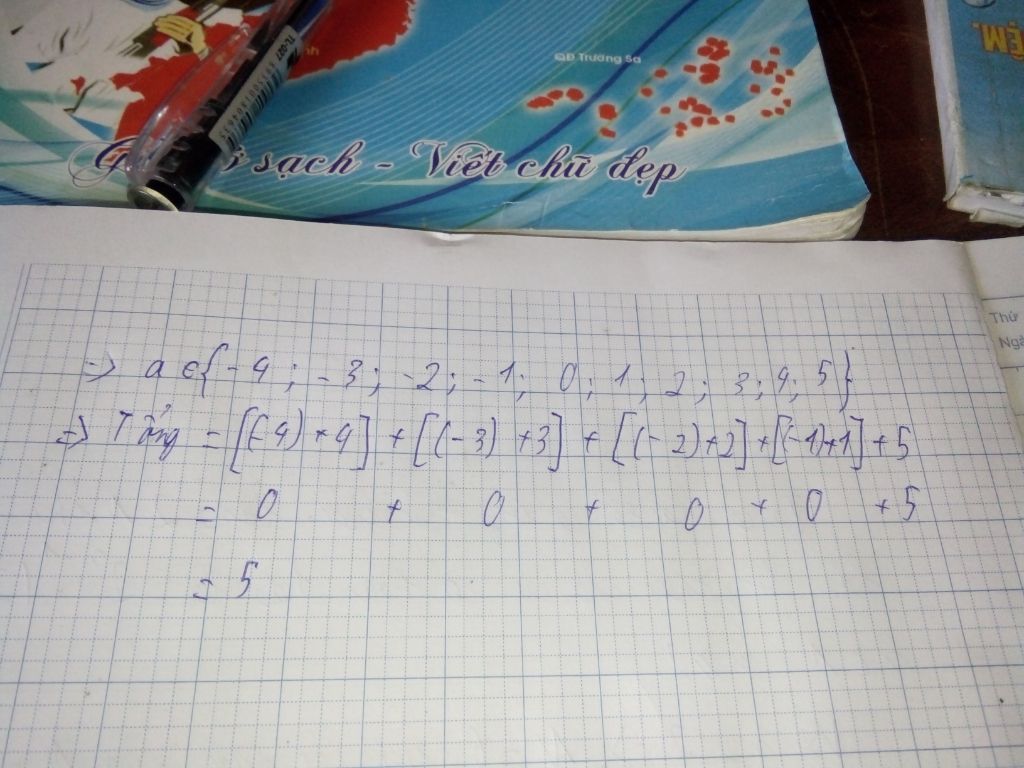 QĐ Trường Sa
sạch - Viết chữ đẹp
TL-027
ỆM.
Thứ
Ngà
=> a ∈ {-4; -3; -2; -1; 0; 1; 2; 3; 4; 5}
=> Tổng = [(-4) + 4] + [(-3) + 3] + [(-2) + 2] + [(-1) + 1] + 5
= 0 + 0 + 0 + 0 + 5
= 5